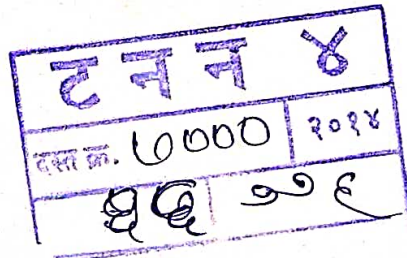 ट न न ४
दस्त क्र. ७००० २०१४